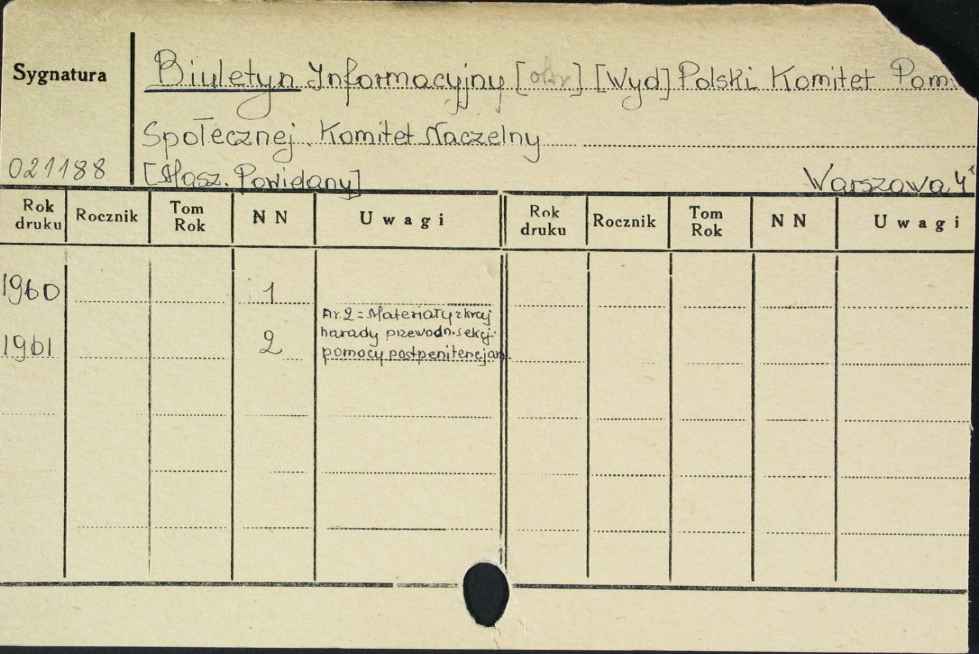 Sygnatura
Biuletyn Informacyjny [] [Wyd] Polski Komitet Pom
Społecznej. Komitet Naczelny
021188
[Masz. Powielany]
Warszawa 4°
Rok druku Rocznik Tom Rok NN Uwagi Rok druku Rocznik Tom Rok NN Uwagi
1960 1
Nr. 2 = Materiały z kraj
1961 2 narady przewodn. sekcj.
pomocy postpenitencjarn.